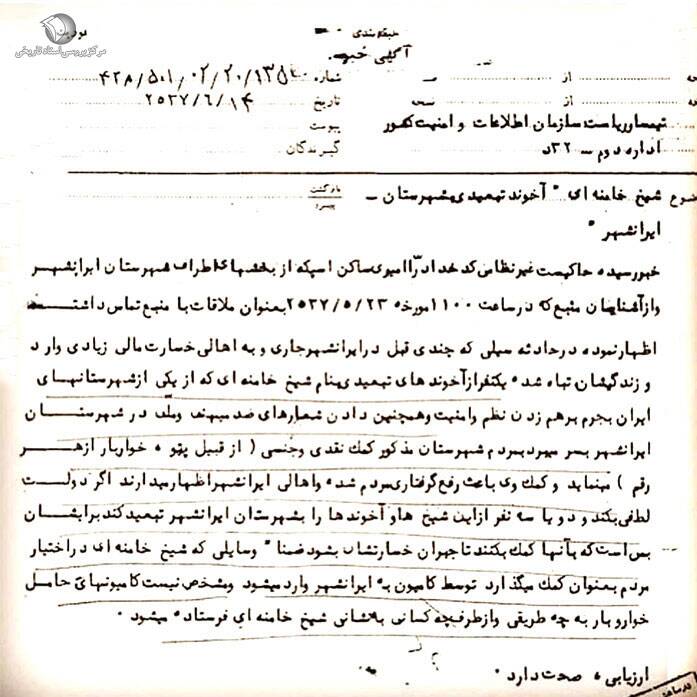 مرکز بررسی اسناد تاریخی
طبقه‌بندی
آگهی خبر
شماره ۴۲۸/۵۰۱/۰۲/۲۰/۱۳۵
تاریخ ۲۵۳۷/۶/۱۴
پیوست
گیرندگان
از
از
نسخه
تیمسار ریاست سازمان اطلاعات و امنیت کشور
اداره دوم – ۳۲د
بازگشت
پیرو
شیخ خامنه ای " آخوند تبعیدی بشهرستان –
ایرانشهر "
خبر رسیده حاکیست غیرنظامی کدخداد ساکن اسپکه از بخشهای اطراف شهرستان ایرانشهر
واز آشنایان منبع که در ساعت ۱۱۰۰ مورخه ۲۵۳۷/۵/۲۳ بعنوان ملاقات با منبع تماس داشته
اظهارنموده در حادثه سیلی که چندی قبل در ایرانشهر جاری و به اهالی خسارت مالی زیادی وارد
و زندگیشان تباه شده یکنفر از آخوند های تبعیدی بنام شیخ خامنه ای که از یکی از شهرستانهای
ایران بجرم برهم زدن نظم وامنیت وهمچنین دادن شعارهای ضد میهنی و ملی در شهرستان
ایرانشهر بسر میبرد بمردم شهرستان مذکور کمک نقدی وجنسی ( از قبیل پتو ، خواربار از هر
رقم ) مینماید و کمک وی باعث رفع گرفتاری مردم شده واهالی ایرانشهر اظهار میدارند اگر دولت
لطفی بکند و دو یا سه نفر از این شیخ ها و آخوندها را بشهرستان ایرانشهر تبعید کند برایشان
بس است که بآنها کمک بکنند تا جبران خسارتشان بشود ضمنا" وسایلی که شیخ خامنه ای در اختیار
مردم بعنوان کمک میگذارد توسط کامیون به ایرانشهر وارد میشود ومشخص نیست کامیونهای حامل
خواروبار به چه طریقی واز طرف چه کسانی به نشانی شیخ خامنه ای فرستاده میشود .
ارزیابی ، صحت دارد .